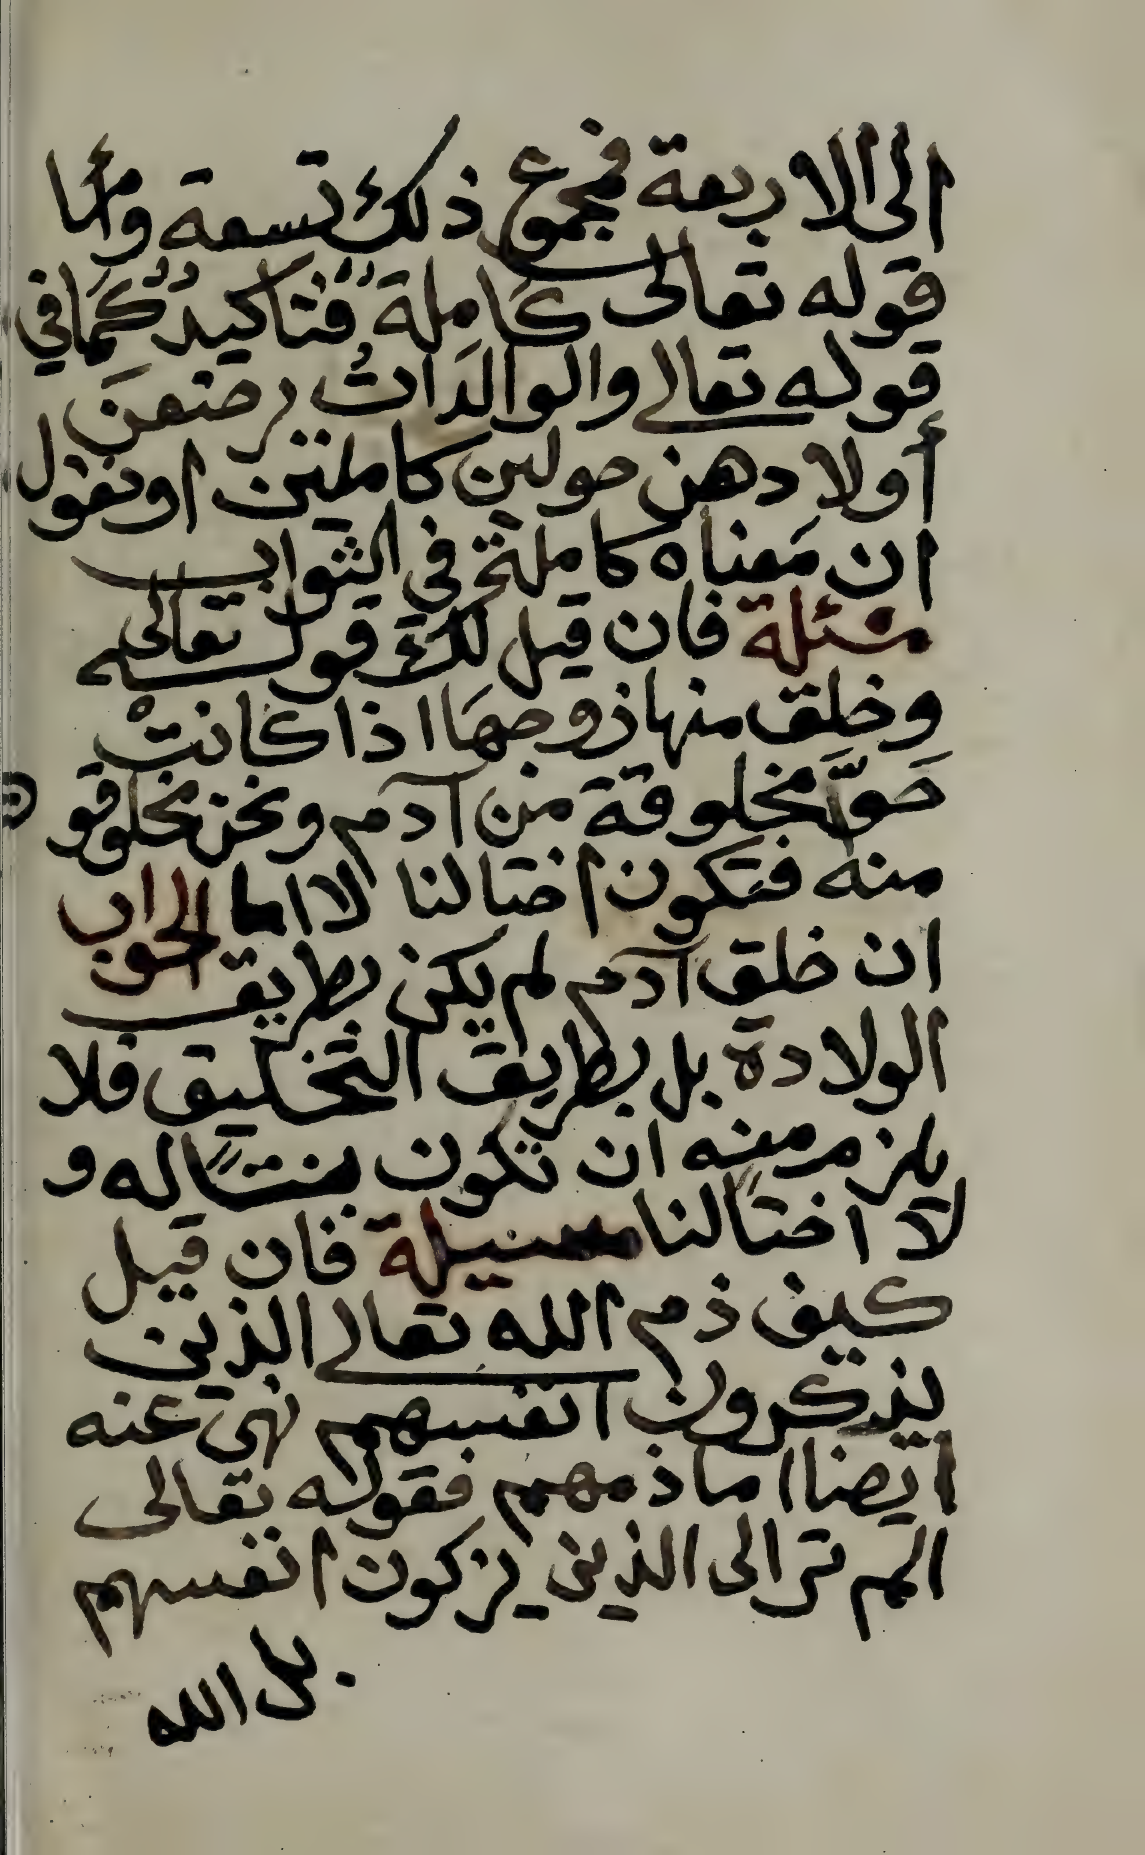 الى الاربعة فمجموع ذلك تسعة وأما
قوله تعالى كاملة فتاكيد كما في
قوله تعالى والوالدات يرضعن
أولادهن حولين كاملين او نقول
ان معناه كاملة في الثواب
مسئلة فان قيل لك قوله تعالى
وخلق منها زوجها اذا كانت
حوّا مخلوقة من آدم ونحن مخلوقون
منه فتكون اختا لنا لا اما الجواب
ان خلق آدم لم يكن بطريق
الولادة بل بطريق التخليق فلا
يلزم منه ان تكون بنتًا له و
لا اختًا لنا مسيلة فان قيل
كيف ذم الله تعالى الذين
يذكرون انفسهم نهى عنه
ايضا اما ذمهم فقوله تعالى
الم تر الى الذين يزكون انفسهم
بل الله